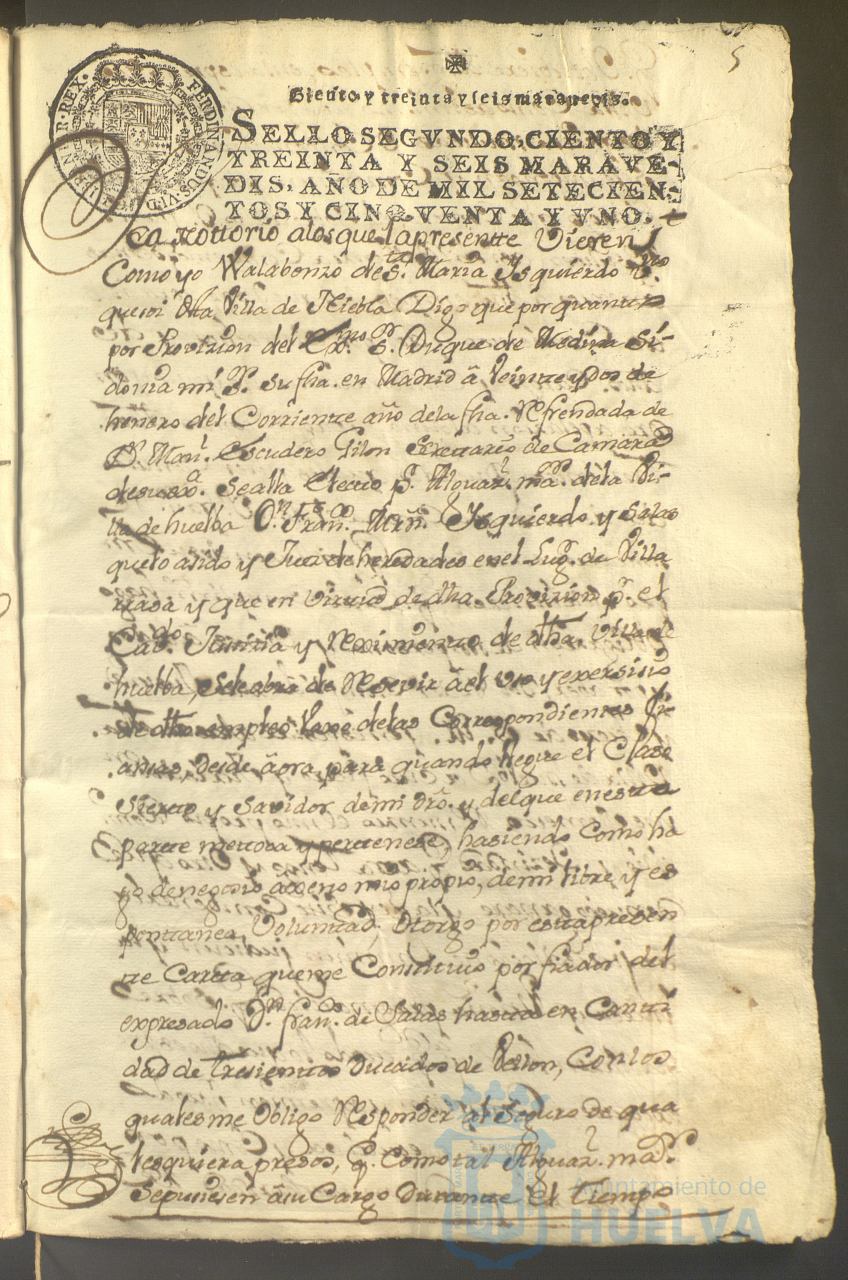 5
Ciento y treinta y seis maravedis.
SELLO SEGVNDO, CIENTO Y
TREINTA Y SEIS MARAVE-
DIS, AÑO DE MIL SETECIEN-
TOS Y CINQVENTA Y VNO.
FERDINANDUS VI D G REX
Ea nottorio alos que la presentte Vieren
Como yo Walabonzo de sta. Maria Ysquierdo Vno
que soi desta Villa de Niebla Digo que por quantto
por Provizion del Exmo. Sr. Duque de Medina Si-
donia mi Sr. su fha. en Madrid â Veinte y dos de
henero del Corriente año de la fha. Refrendada de
Dn. Manl. Escudero Gilon Secrettario de Camara
de su exa. se alla Electo pr. Alguazl. mor. de la Vi-
lla de huelba Dn. Franco. Ysquierdo y Salas
que lo a sido y Juez de heredades en el Lugr. de Villa
rrasa y que en virtud de dha. Provizion pr. el
Cavdo. Justtizia y Reximiento de dha. Villa de
huelba, se le abra de Resevir âel uso y exersisio
de dho. empleo vaxo de las Correspondientes fi-
anzas, desde âora, para quando llegue el Caso
Sierto y Savidor de mi dro. y del que en estta
partte me ttoca y perttenese, hasiendo Como ha
go de negozio axeno mio propio, de mi libre y es
ponttanea Voluntad, Otorgo por estta presen
tte Cartta que me Constituio por fiador del
expresado Dn. Franco. de Salas hasta en Canti
dad de Tresientos Ducados de Vellon, Con los
quales me Obligo Responder al Seguro de qua
lesquiera presos, q. Como tal Alguazl. mar.
Se pusiesen â su Cargo Durante el Tiempo
Ayuntamiento de
HUELVA